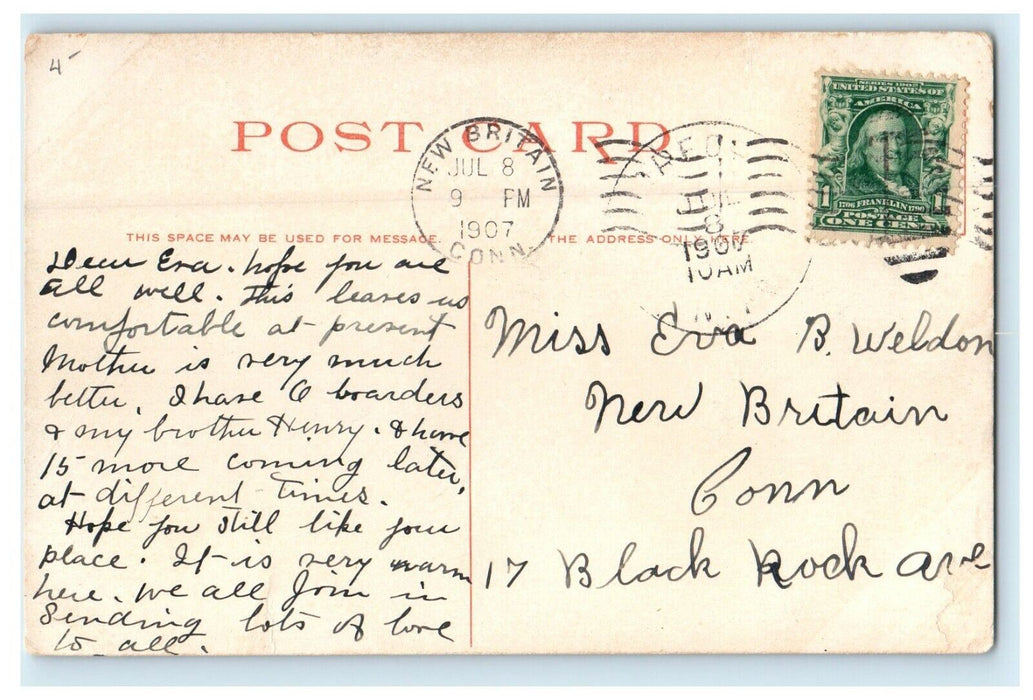 4-
POST CARD
NEW BRITAIN
JUL 8
9 PM
1907
CONN.
JUL
8
1907
10AM
SERIES 1902
UNITED STATES OF
AMERICA
1 1
1706 FRANKLIN 1790
POSTAGE
ONE CENT
THIS SPACE MAY BE USED FOR MESSAGE.
THE ADDRESS ONLY HERE.
Dear Eva. hope you are
all well. This leaves us
comfortable at present
Mother is very much
better, I have 6 boarders
& my brother Henry. & have
15 more coming later,
at different times.
Hope you still like your
place. It is very warm
here. We all Join in
Sending lots of love
to all.
Miss Eva B. Weldon
New Britain
Conn
17 Black Rock Ave